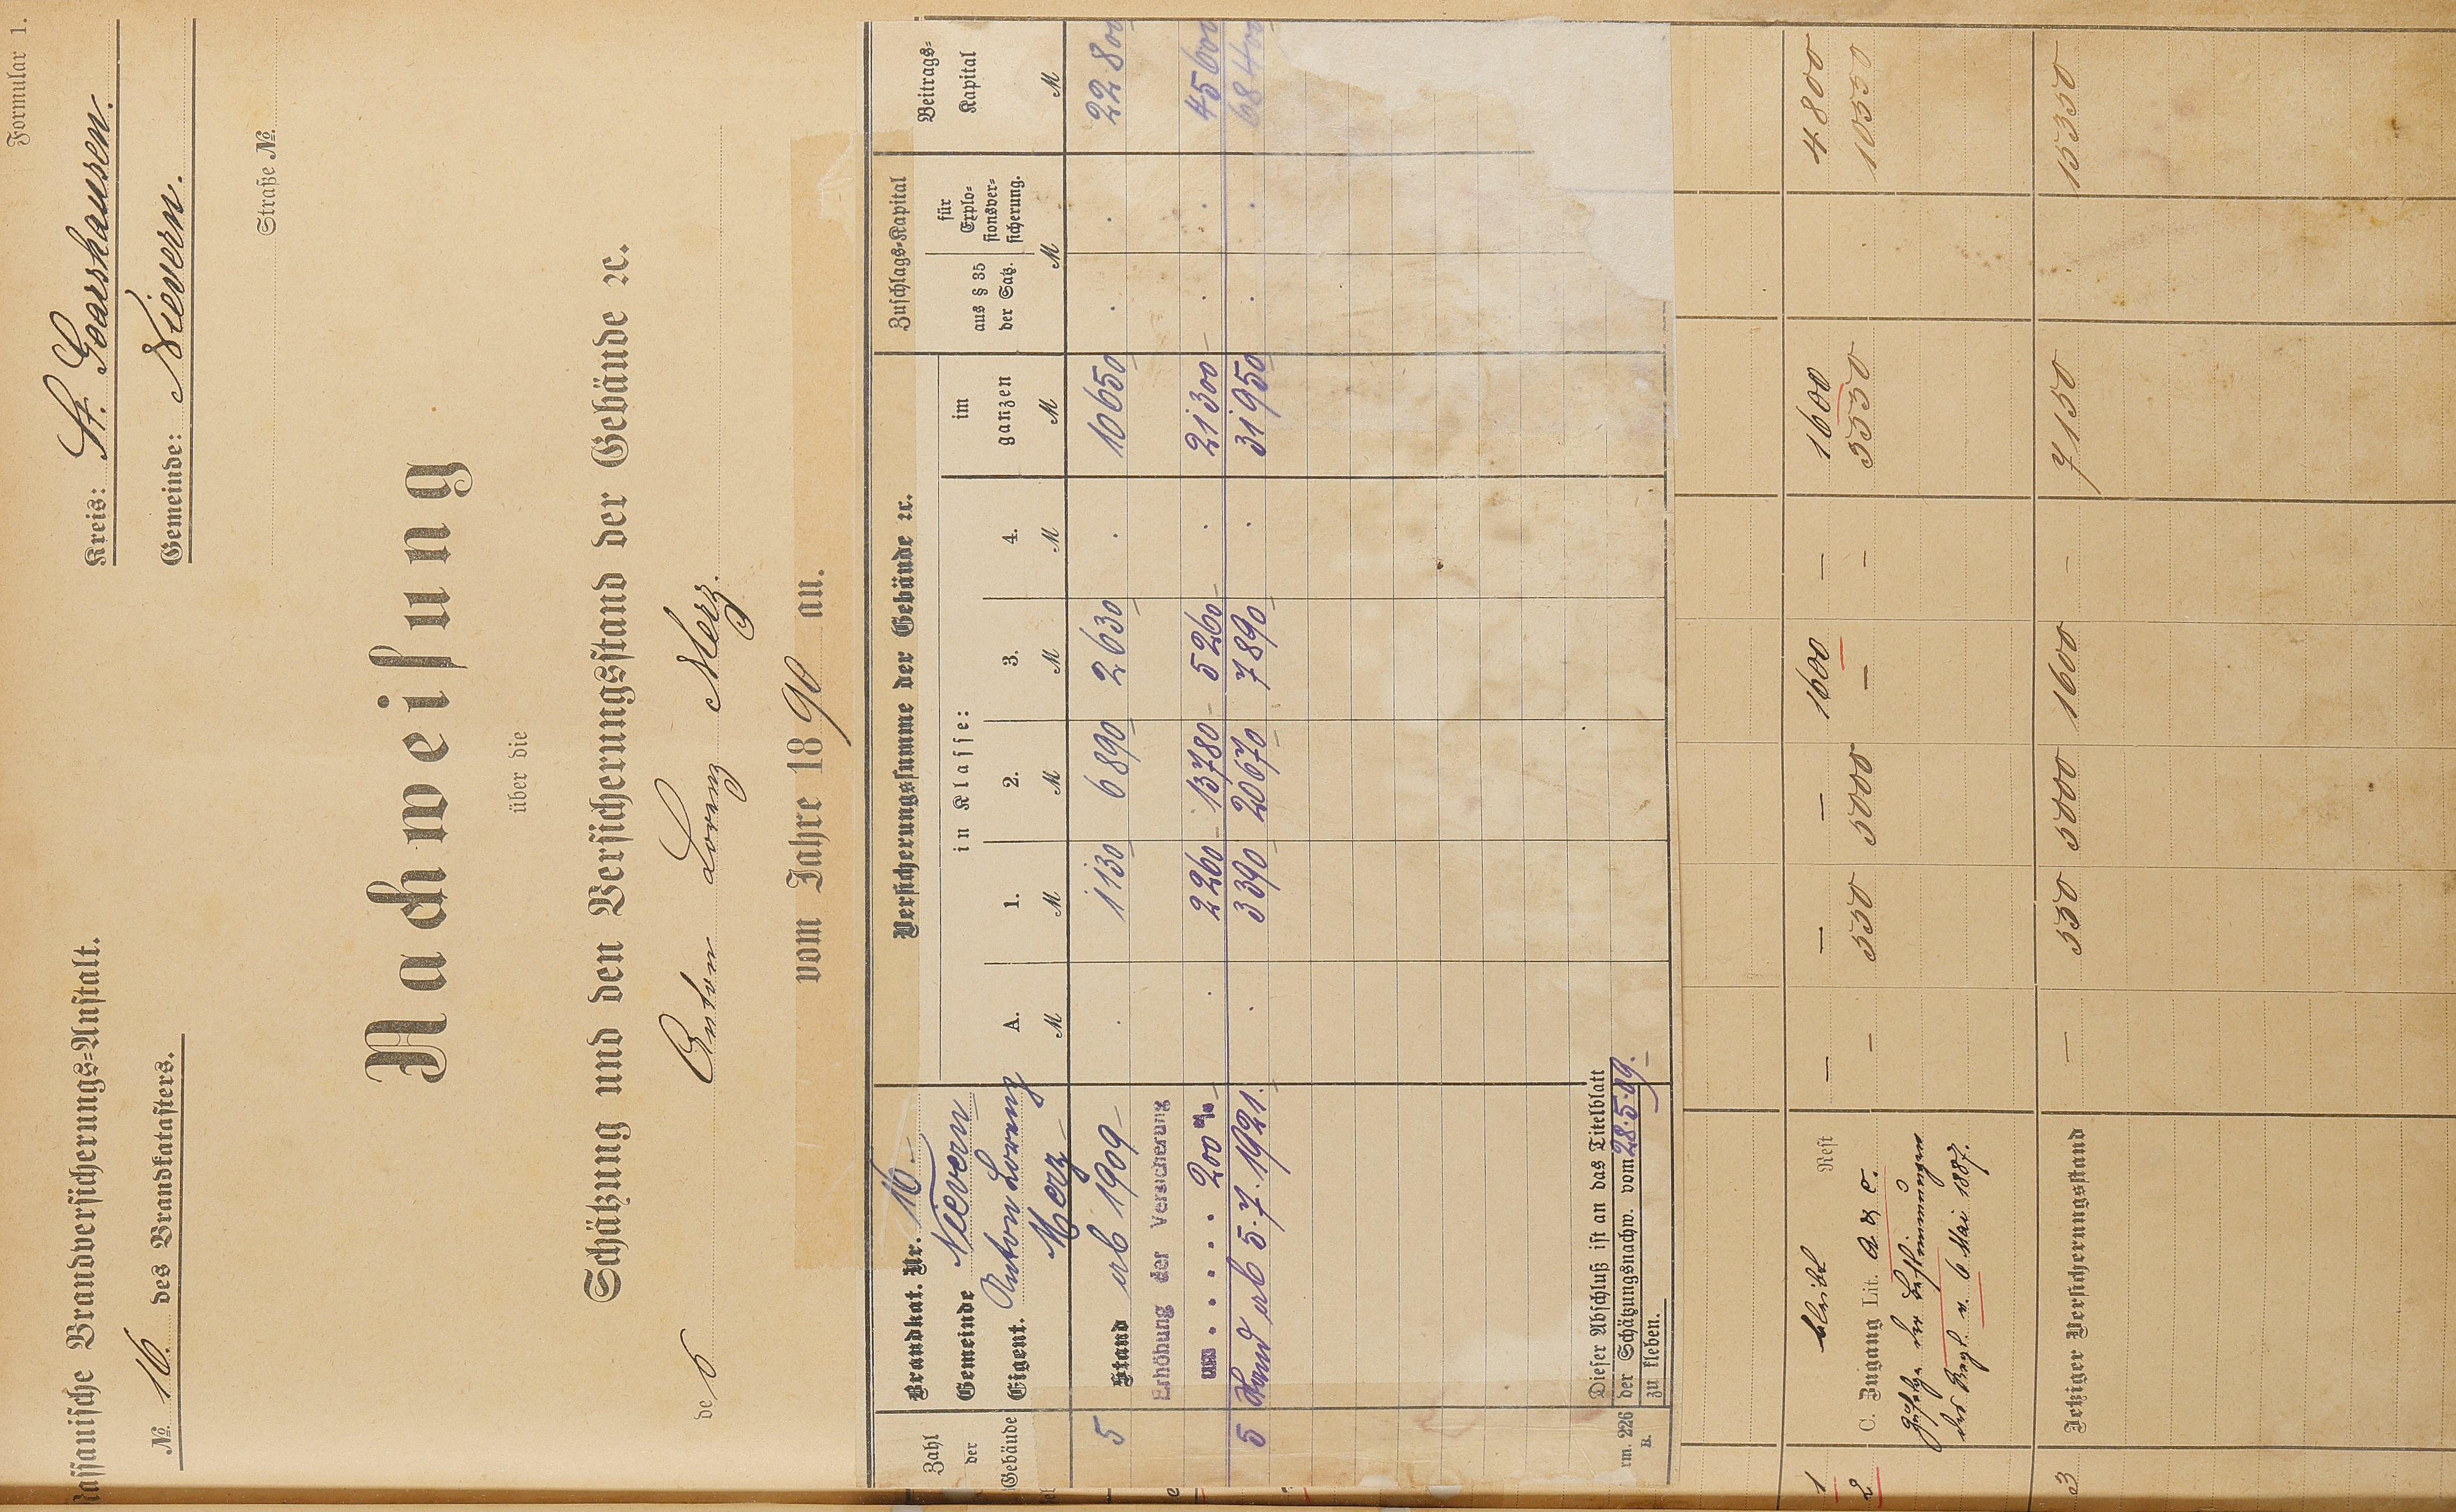 Formular 1.
Nassauische Brandversicherungs-Anstalt.
Kreis: St. Goarshausen.
No. 16. des Brandkatasters.
Gemeinde: Nievern.
Straße No.
Nachweisung
über die
Schätzung und den Versicherungsstand der Gebäude ꝛc.
de s Anton Lorenz Merz.
vom Jahre 1890 an.
Zahl der Gebäude
Brandkat. Nr. 16.
Gemeinde Nievern
Eigent. Anton Lorenz Merz
Versicherungssumme der Gebäude ꝛc.
in Klasse:
A. 1. 2. 3. 4. im ganzen
Zuschlags-Kapital
aus § 35 der Satz.
für Explosionsversicherung.
Beitrags-Kapital
M M M M M M M M
5 Stand ab 1909 . 1130 6890 2630 . 10650 . . 22800
Erhöhung der Versicherung
um . . . . . 200 % . 2260 13780 5260 . 21300 . . 45600
5 Stand ab 5.7.1921. . 3390 20670 7890 . 31950 . . 68400
Dieser Abschluß ist an das Titelblatt
der Schätzungsnachw. vom 28.5.09.
zu kleben.
rm. 226
B.
1 bleibt Rest – – – 1600 – 1600 4800
2 C. Zugang Lit. a & c. – 550 5000 – – 5550 10550
der Bestimmungen
v. 6. Mai 1887.
3 Jetziger Versicherungsstand – 550 5000 1600 – 7150 15350